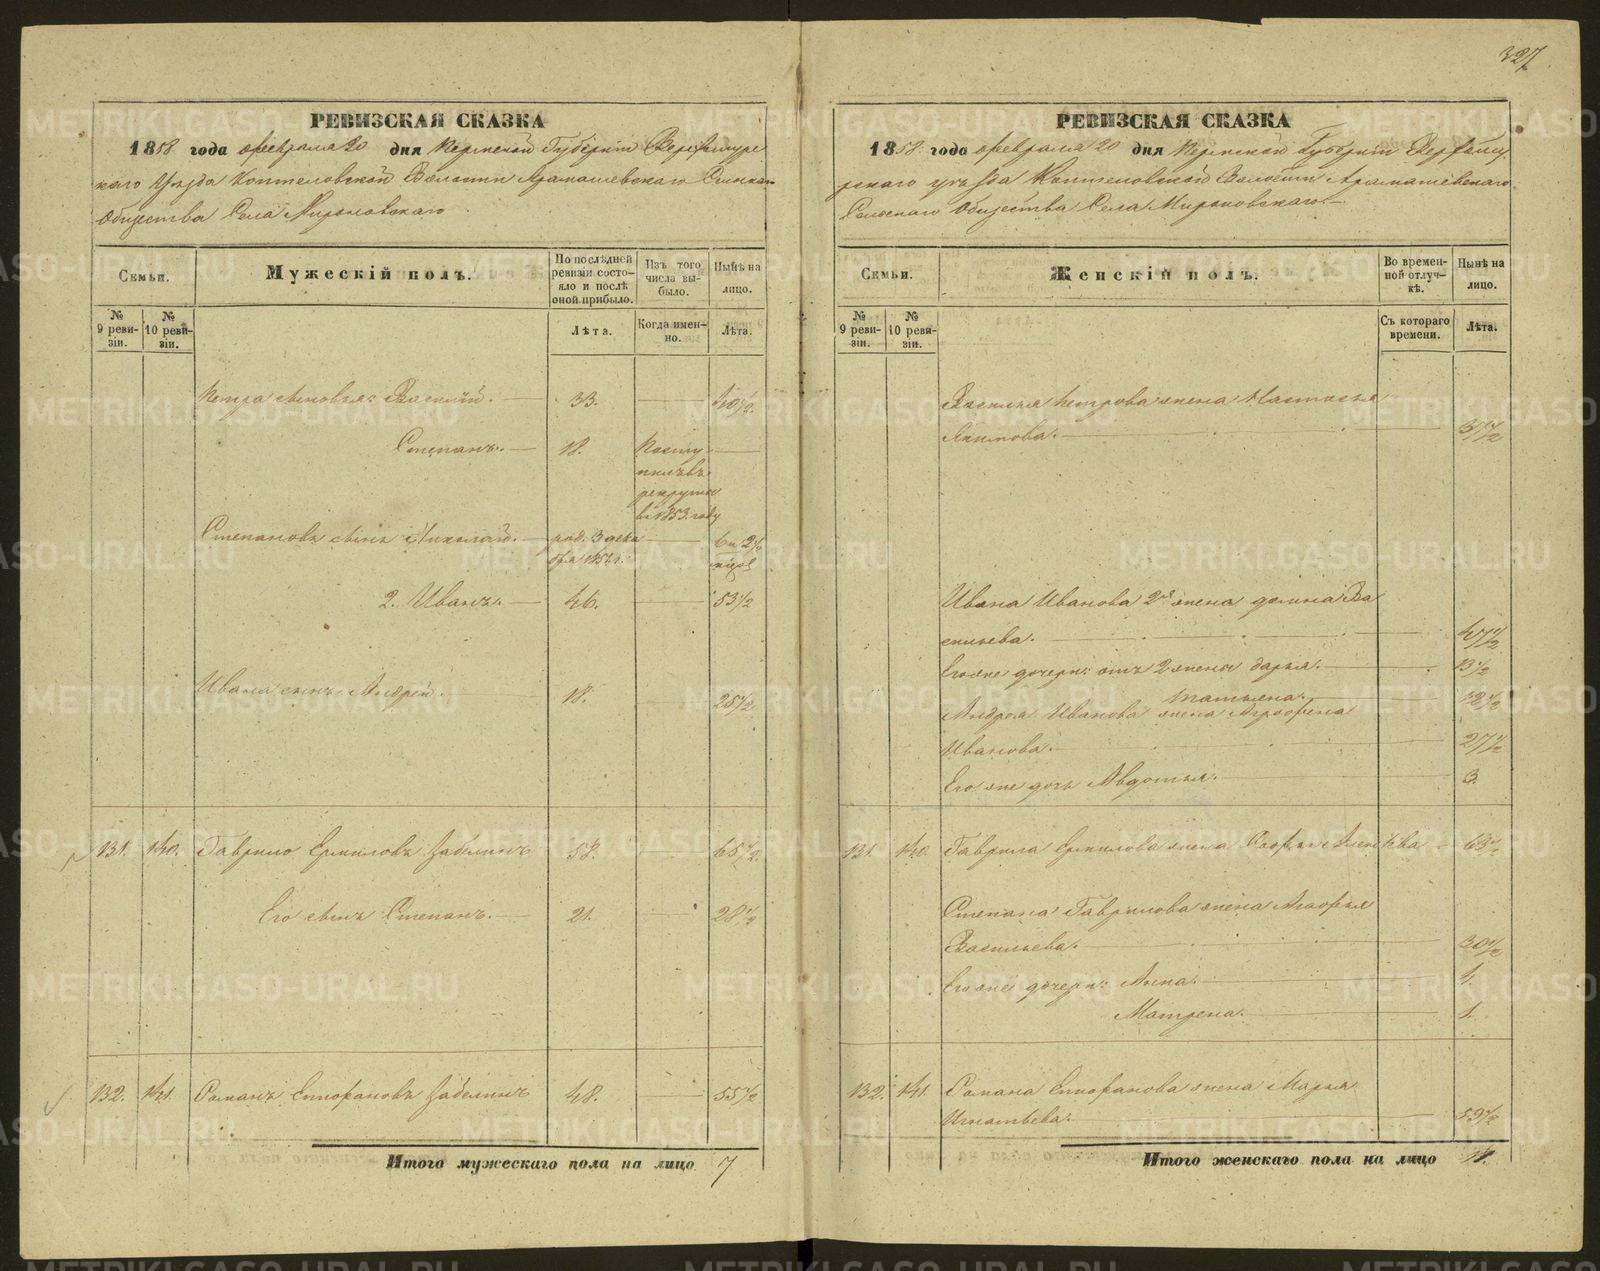 327
РЕВИЗСКАЯ СКАЗКА
1858 года февраля 20 дня Пермской Губерніи Верхотур
скаго Уѣзда Коптеловской Волости Арамашевскаго Сельскаго
Общества Села Мироновскаго
Семьи.
Мужескій полъ.
По послѣдней ревизіи состояло и послѣ оной прибыло.
Изъ того числа выбыло.
Нынѣ на лицо.
№ 9 ревизіи.
№ 10 ревизіи.
Лѣта.
Когда именно.
Лѣта.
Петра сыновья: Василій. 33. 40½.
Степанъ. 18. Поступилъ въ рекруты въ 1853 году
Степановъ сынъ Николай. род. 3 декабря 6 и 2½
2. Иванъ. 46. 53½
Ивана сынъ Андрей. 18. 25½
131. 140. Гаврило Ермиловъ Забелинъ 58. 65½
Его сынъ Степанъ. 21. 28½
132. 141. Романъ Епифановъ Забелинъ 48. 55½
Итого мужескаго пола на лицо 7
РЕВИЗСКАЯ СКАЗКА
1858 года февраля 20 дня Пермской Губерніи Верхоту
рскаго уѣзда Коптеловской Волости Арамашевскаго
Сельскаго Общества Села Мироновскаго
Семьи.
Женскій полъ.
Во временной отлучкѣ.
Нынѣ на лицо.
№ 9 ревизіи.
№ 10 ревизіи.
Съ котораго времени.
Лѣта.
Василья Петрова жена Настасья
Якимова. 37½
Ивана Иванова 2я жена Домна Ва
сильева. 47½
Его же дочери: отъ 2 жены Дарья. 13½
Татьяна. 12½
Андрея Иванова жена Агрофена
Иванова. 27½
Его же дочь Авдотья. 3
131. 140. Гаврила Ермилова жена Софья 63½
Степана Гаврилова жена
Васильева. 30½
Его же дочери: Анна. 4.
Матрена. 1.
132. 141. Романа Епифанова жена Марья
Игнатьева. 59½
Итого женскаго пола на лицо 11.
METRIKI.GASO-URAL.RU